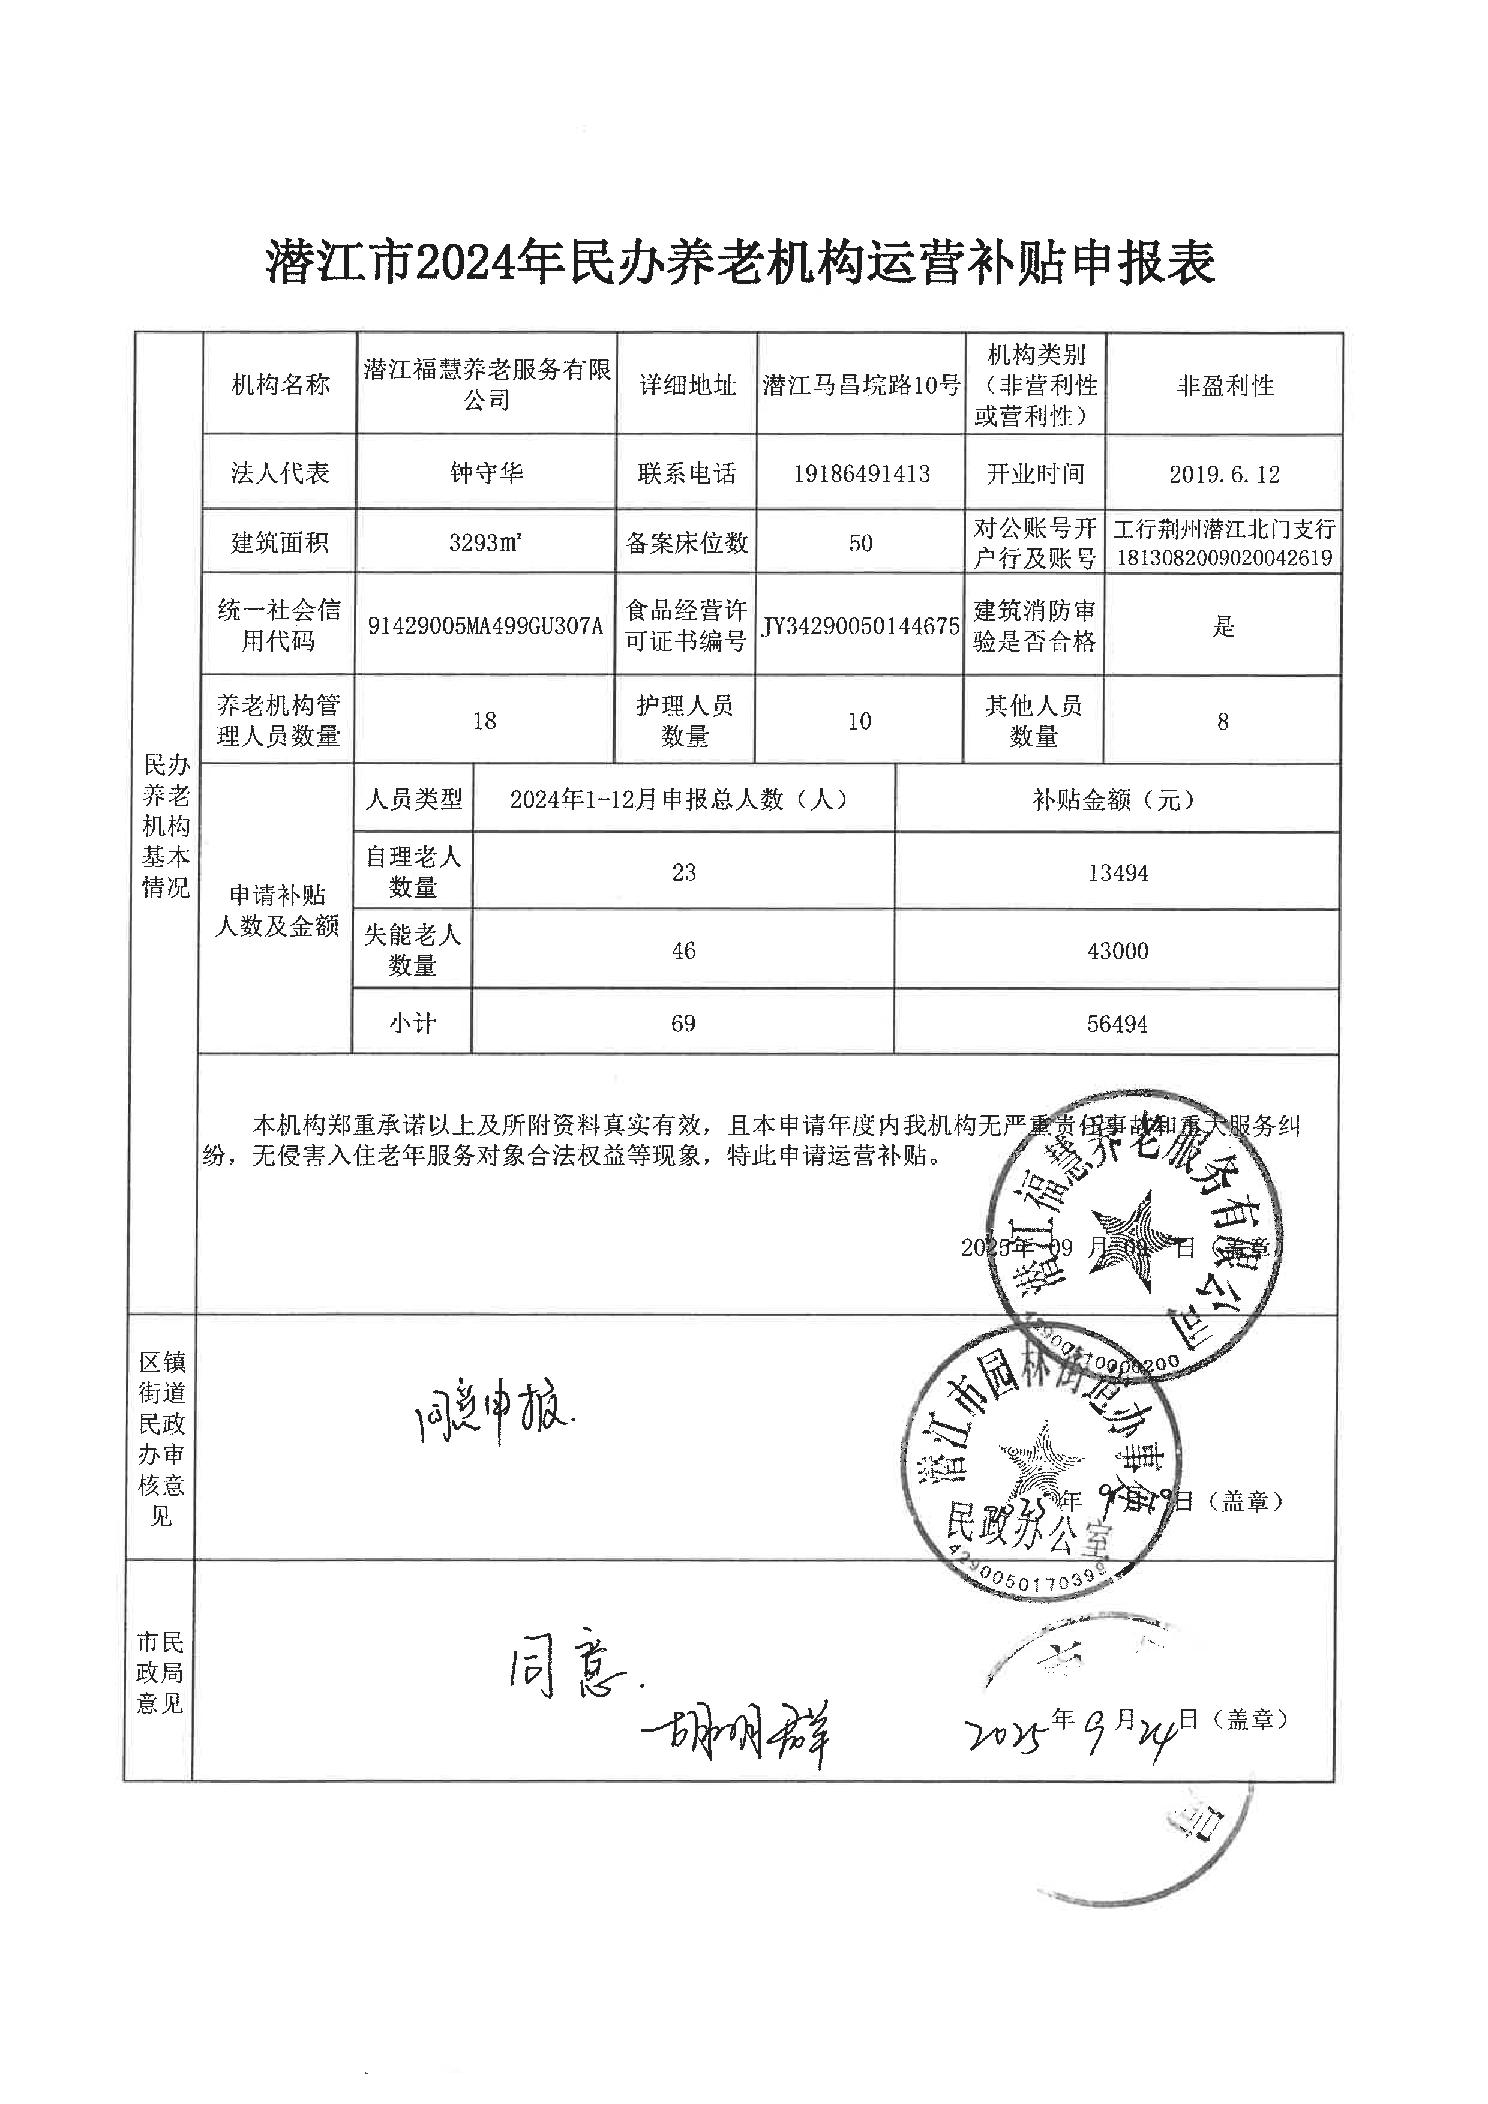 潜江市2024年民办养老机构运营补贴申报表
民办
养老
机构
基本
情况
机构名称
潜江福慧养老服务有限
公司
详细地址
潜江马昌垸路10号
机构类别
（非营利性
或营利性）
非盈利性
法人代表
钟守华
联系电话
19186491413
开业时间
2019.6.12
建筑面积
3293㎡
备案床位数
50
对公账号开
户行及账号
工行荆州潜江北门支行
1813082009020042619
统一社会信
用代码
91429005MA499GU307A
食品经营许
可证书编号
JY34290050144675
建筑消防审
验是否合格
是
养老机构管
理人员数量
18
护理人员
数量
10
其他人员
数量
8
申请补贴
人数及金额
人员类型
2024年1-12月申报总人数（人）
补贴金额（元）
自理老人
数量
23
13494
失能老人
数量
46
43000
小计
69
56494
本机构郑重承诺以上及所附资料真实有效，且本申请年度内我机构无严重责任事故和重大服务纠
纷，无侵害入住老年服务对象合法权益等现象，特此申请运营补贴。
2025年 09 月 09 日（盖章）
潜江福慧养老服务有限公司
区镇
街道
民政
办审
核意
见
同意申报.
潜江市园林街道办事处
2025年9月9日（盖章）
民政办公室
4290050170399
市民
政局
意见
同意.
胡明群
2025年9月24日（盖章）
局